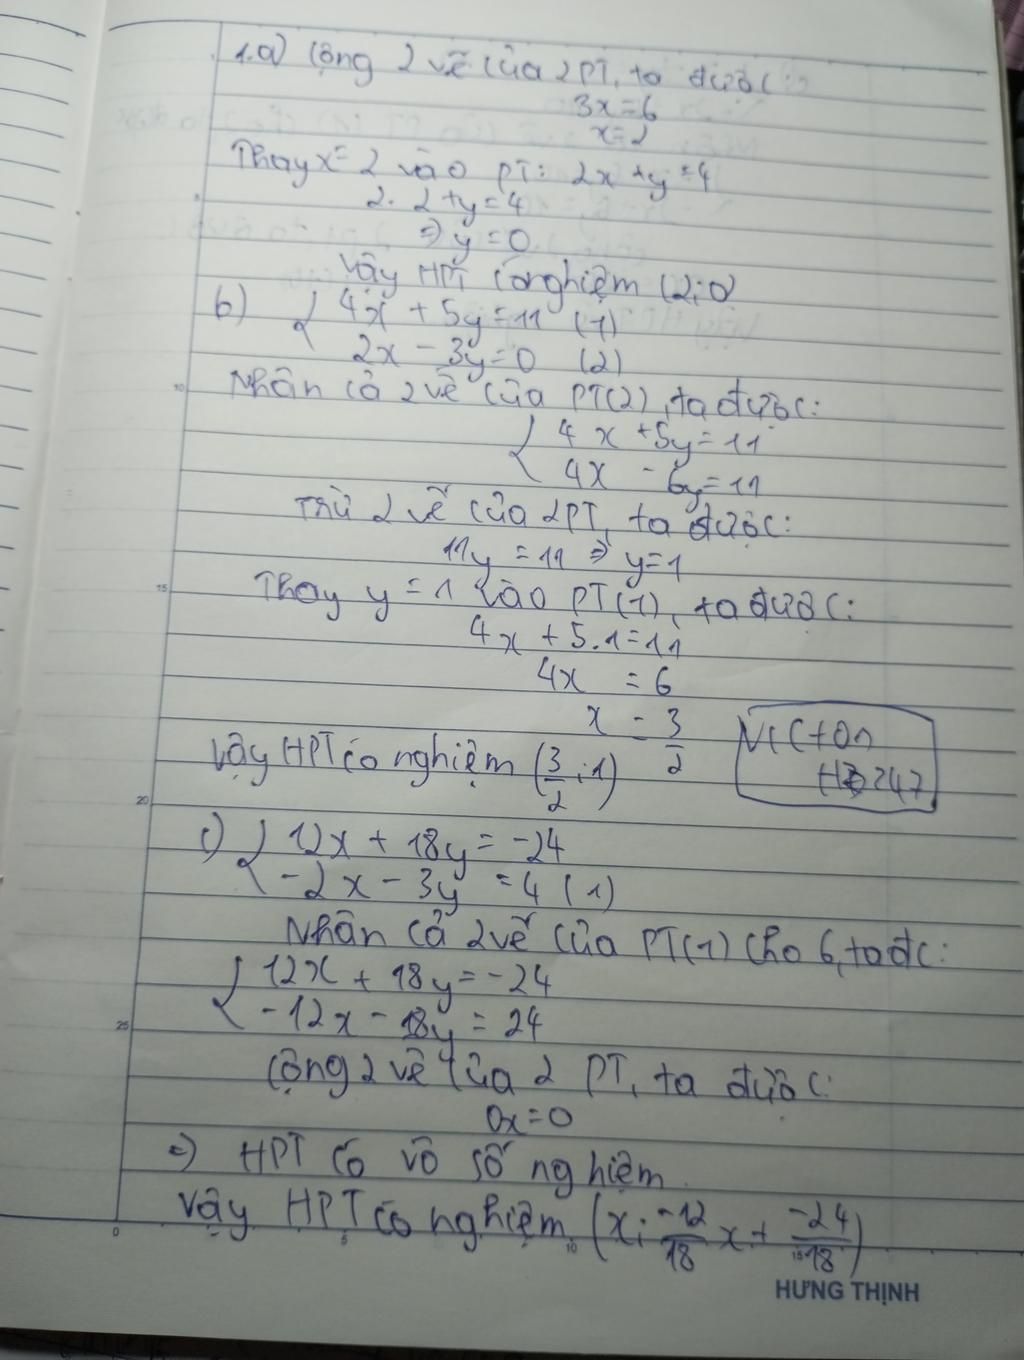 1.a) Cộng 2 vế của 2PT, ta được:
3x=6
x=2
Thay x=2 vào PT: 2x+y=4
2.2+y=4
⇒ y=0
Vậy HPT có nghiệm (2;0)
b) { 4x + 5y=11 (1)
2x - 3y=0 (2)
10
Nhân cả 2 vế của PT(2), ta được:
{ 4x +5y=11
4x - 6y=11
Trừ 2 vế của 2PT, ta được:
11y = 11 ⇒ y=1
15
Thay y=1 vào PT(1), ta được:
4x + 5.1=11
4x = 6
x = 3/2
Vậy HPT có nghiệm (3/2;1)
247
20
c) { 12x + 18y = -24
-2x - 3y = 4 (1)
Nhân cả 2 vế của PT(1) cho 6, ta đc:
{ 12x + 18y = -24
-12x - 18y = 24
25
Cộng 2 vế của 2 PT, ta được:
0x=0
⇒ HPT có vô số nghiệm
Vậy HPT có nghiệm (x; -12/18 x + -24/18)
0 5 10 15
HƯNG THỊNH